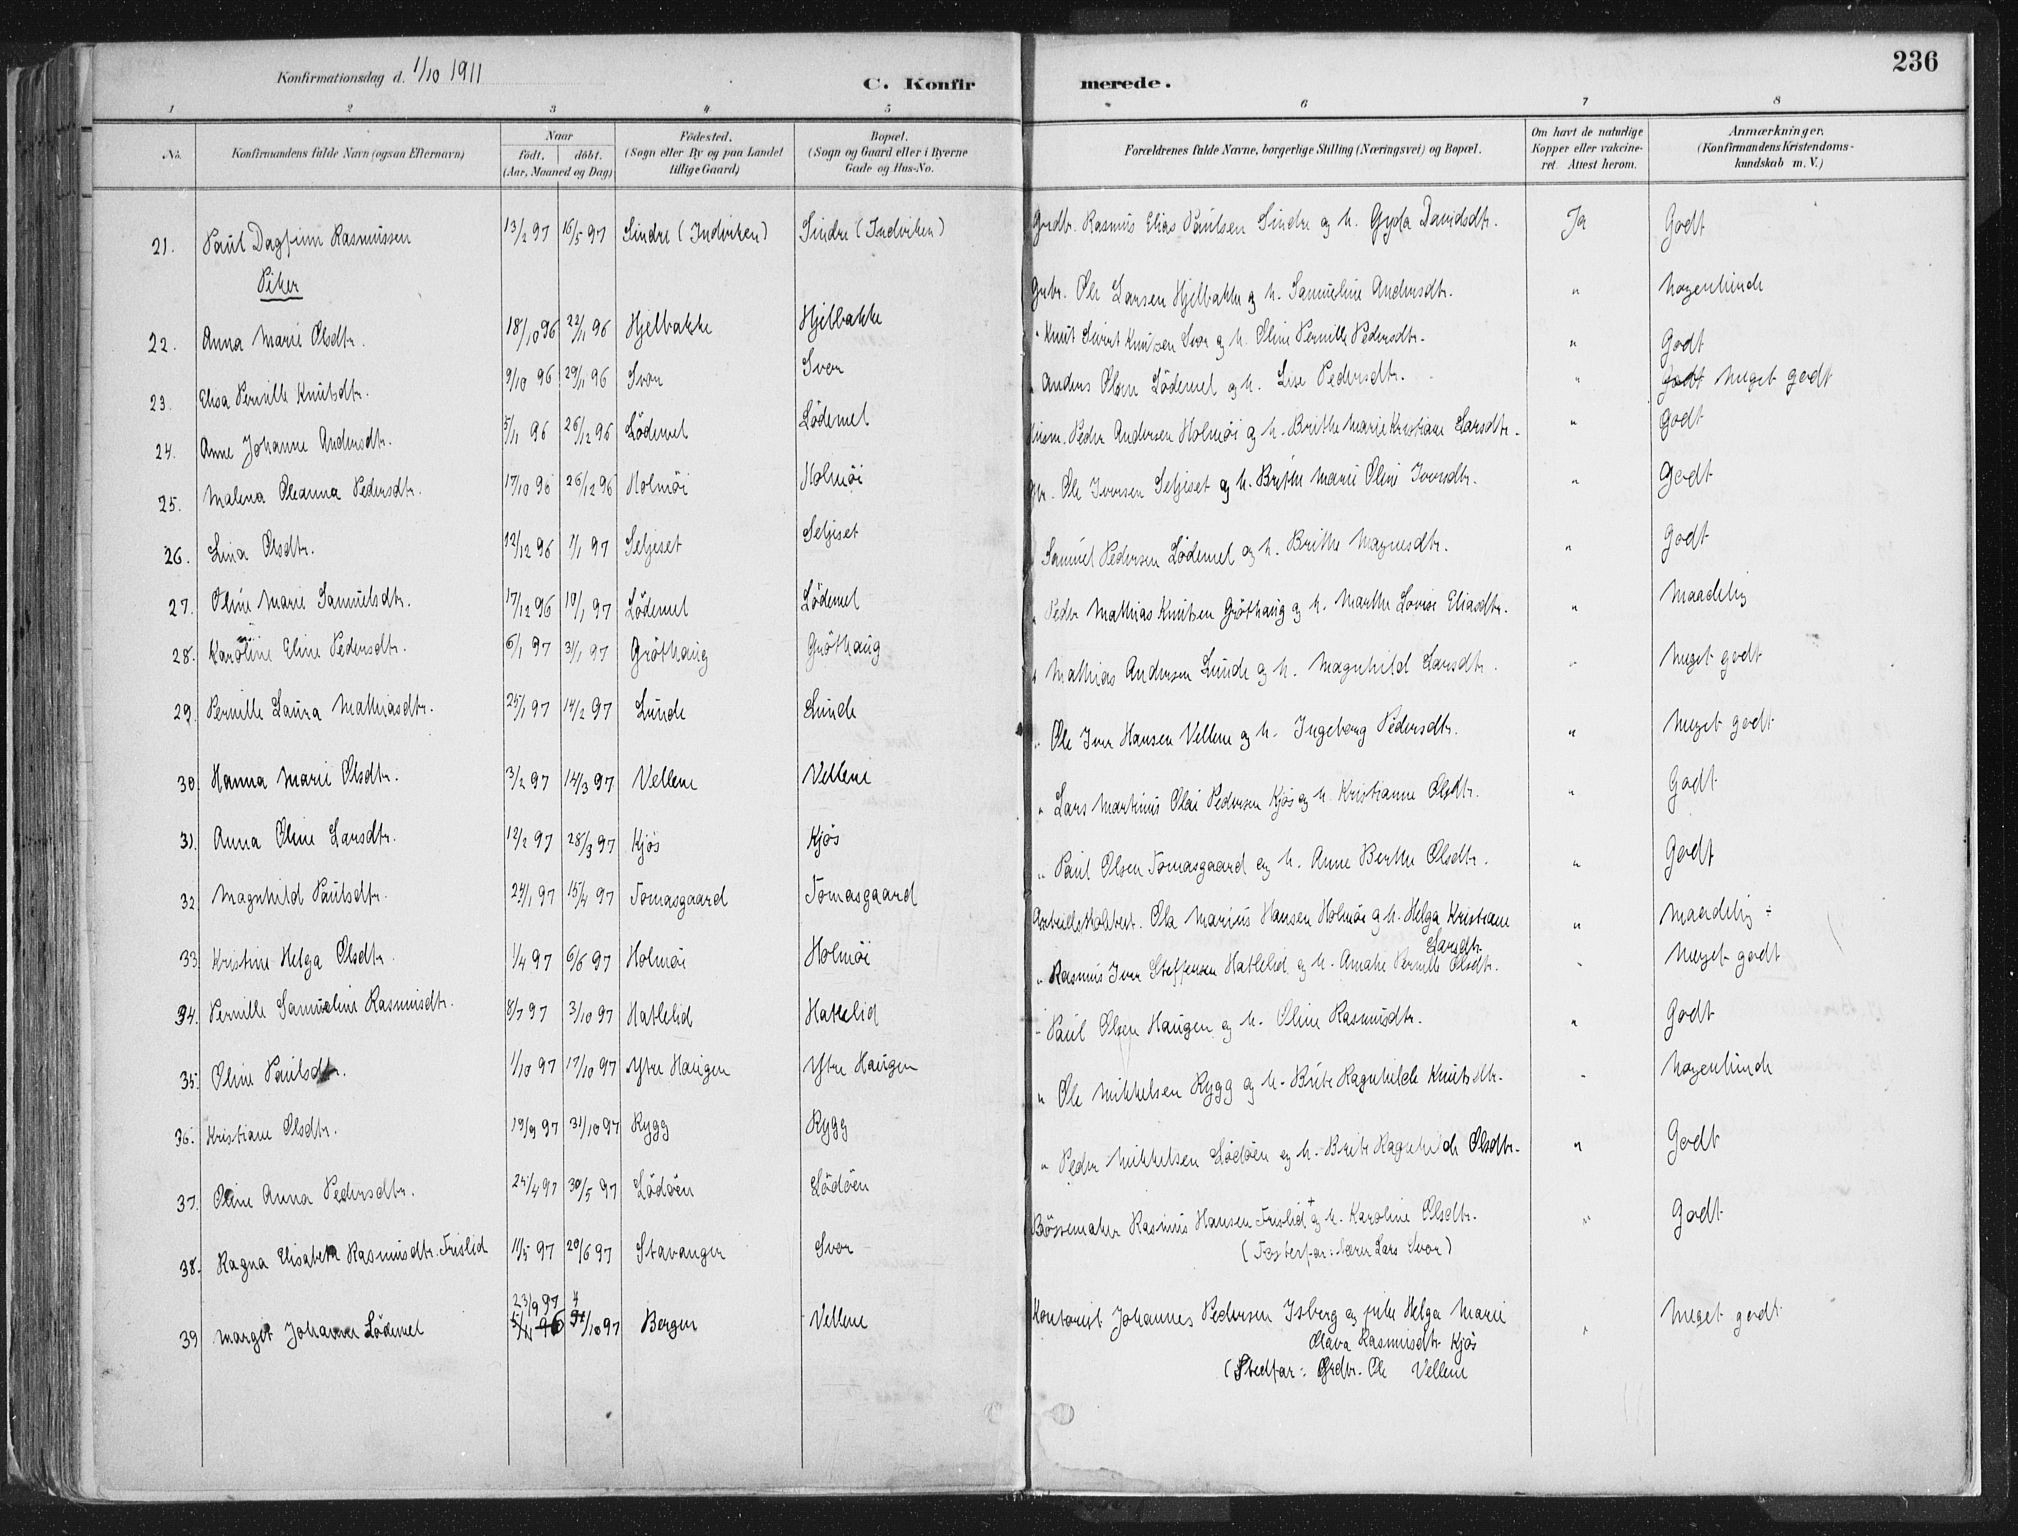 236
Konfirmationsdag d. 1/10 1911
C. Konfirmerede.
1 2 3 4 5 6 7 8
No. Konfirmandens fulde Navn (ogsaa Efternavn) Naar födt. döbt. (Aar, Maaned og Dag) Födested. (Sogn eller By og paa Landet tillige Gaard) Bopæl. (Sogn og Gaard eller i Byerne Gade og Hus-No. Forældrenes fulde Navne, borgerlige Stilling (Næringsvei) og Bopæl. Om havt de naturlige Kopper eller vakcineret. Attest herom. Anmærkninger. (Konfirmandens Kristendomskundskab m. V.)
21. Paul Dagfinn Rasmussen 13/2 97 16/5 97 Sindre (Indviken) Sindre (Indviken) Grdbr. Rasmus Elias Paulsen Sindre og h. Gyda Davidsdtr. Ja Godt
Piker
22. Anna Marie Olsdtr. 18/10 96 22/11 96 Hjelbakke Hjelbakke Ole Larsen Hjelbakke og h. Samueline Andersdtr. " Nogenlunde
23. Elisa Pernille Knutsdtr. 9/10 96 29/11 96 Svor Svor " Knut Sivert Knutsen Svor og h. Oline Pernille Pedersdtr. " Godt
24. Anne Johanne Andersdtr. 5/11 96 26/12 96 Lödemel Lödemel " Anders Olsen Lödemel og h. Lise Pedersdtr. " Godt Meget godt
25. Malena Oleanna Pedersdtr. 17/10 96 26/12 96 Holmöi Holmöi Husm. Peder Andersen Holmöi og h. Brithe Marie Kristiane Larsdtr. " Godt
26. Lina Olsdtr. 12/12 96 1/1 97 Seljeset Seljeset Ole Iversen Seljeset og h. Brithe Marie Oline Iversdtr. " Godt
27. Oline Marie Samuelsdtr. 17/12 96 10/1 97 Lödemel Lödemel Samuel Pedersen Lödemel og h. Brithe Magnesdtr. " Godt
28. Karoline Eline Pedersdtr. 6/1 97 31/1 97 Gröthaug Gröthaug " Peder Mathias Knutsen Gröthaug og h. Marthe Lovise Eliasdtr. " Maadelig
29. Pernille Laura Mathiasdtr. 25/1 97 14/2 97 Lunde Lunde " Mathias Andersen Lunde og h. Magnhild Larsdtr. " Meget godt
30. Hanna Marie Olsdtr. 3/2 97 14/3 97 Vellene Vellene " Ole Iver Hansen Vellene og h. Ingeborg Pedersdtr. " Meget godt
31. Anna Oline Larsdtr. 12/2 97 28/3 97 Kjös Kjös " Lars Martinus Olai Pedersen Kjös og h. Kristianne Olsdtr. " Godt
32. Magnhild Paulsdtr. 24/1 97 15/4 97 Tomasgaard Tomasgaard " Paul Olsen Tomasgaard og h. Anne Berthe Olsdtr. " Godt
33. Kristine Helga Olsdtr. 1/4 97 6/6 97 Holmöi Holmöi Ola Marius Hansen Holmöi og h. Helga Kristiane Larsdtr. " Maadelig ÷
34. Pernille Samueline Rasmusdtr. 8/7 97 3/10 97 Hatlelid Hatlelid " Rasmus Iver Steffensen Hatlelid og h. Amalie Pernille Olsdtr. " Meget godt
35. Oline Paulsdtr. 1/10 97 17/10 97 Ytre Haugen Ytre Haugen " Paul Olsen Haugen og h. Oline Rasmusdtr. " Godt
36. Kristiane Olsdtr. 19/9 97 31/10 97 Rygg Rygg " Ole Mikkelsen Rygg og h. Brite Ragnhilde Knutsdtr. " Nogenlunde
37. Oline Anna Pedersdtr. 25/4 97 30/5 97 Lödöen Lödöen " Peder Mikkelsen Lödöen og h. Brite Ragnhilde Olsdtr. " Godt
38. Ragna Elisabeth Rasmusdtr. Frislid 11/5 97 20/6 97 Stavanger Svor Bössemaker Rasmus Hansen Frislid + og h. Karoline Olsdtr. " Godt
(Fosterfar: Lærer Lars Svor)
39 Margit Johanne Lödemel 23/9 97 5/11 96 4/10 97 Bergen Vellene Kontorist Johannes Pedersen Isberg og pike Helga Marie " Meget godt
Olava Rasmusdtr. Kjös
(Stedfar: Grdbr. Ole Vellene